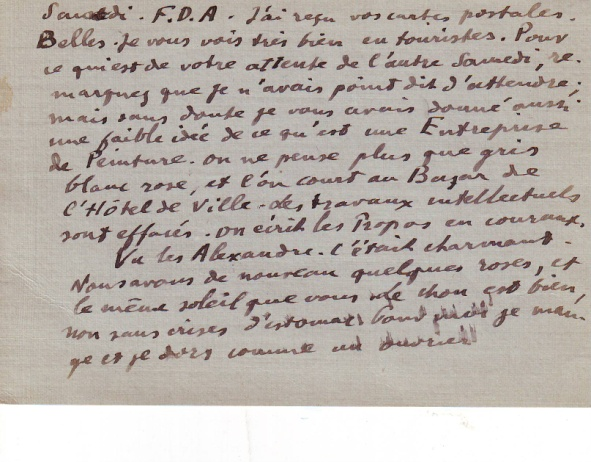 Samedi. F.D.A. J'ai reçu vos cartes postales.
Belles. Je vous vois très bien en touristes. Pour
ce qui est de votre attente de l'autre Samedi, re-
marquez que je n'avais point dit d'attendre;
mais sans doute je vous avais donné aussi
une faible idée de ce qu'est une Entreprise
de Peinture. On ne pense plus que gris
blanc rose, et l'on court au Bazar de
l'Hôtel de Ville. des travaux intellectuels
sont effacés. On écrit les Propos en courant.
Vu les Alexandre. C'était charmant.
Nous avons de nouveau quelques roses, et
le même soleil que vous. Le chon est bien,
non sans crises d'estomac; je man-
ge et je dors comme un ouvrier